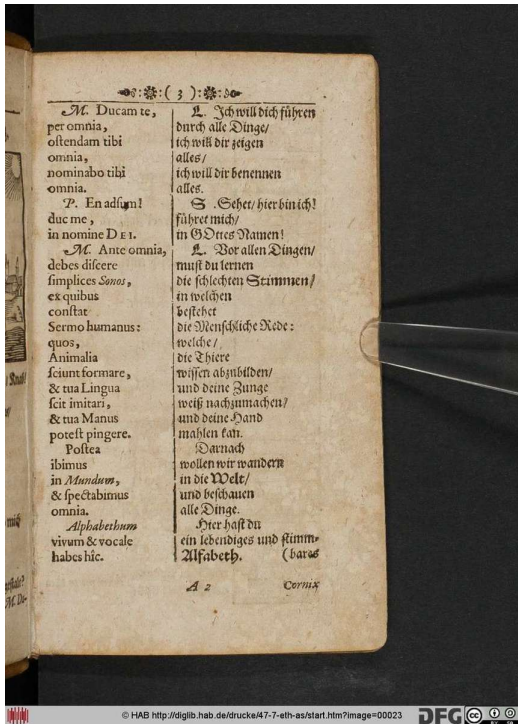 ( 3 ):
M. Ducam te,
per omnia,
oſtendam tibi
omnia,
nominabo tibi
omnia.
P. En adſum!
duc me,
in nomine DEI.
M. Ante omnia,
debes diſcere
ſimplices Sonos,
ex quibus
conſtat
Sermo humanus:
quos,
Animalia
ſciunt formare,
& tua Lingua
ſcit imitari,
& tua Manus
poteſt pingere.
Poſtea
ibimus
in Mundum,
& ſpectabimus
omnia.
Alphabethum
vivum & vocale
habes hîc.
L. Ich will dich führen
durch alle Dinge/
ich will dir zeigen
alles/
ich will dir benennen
alles.
S. Sehet/ hier bin ich!
führet mich/
in GOttes Namen!
L. Vor allen Dingen/
muſt du lernen
die ſchlechten Stimmen/
in welchen
beſtehet
die Menſchliche Rede:
welche/
die Thiere
wiſſen abzubilden/
und deine Zunge
weiß nachzumachen/
und deine Hand
mahlen kan.
Darnach
wollen wir wandern
in die Welt/
und beſchauen
alle Dinge.
Hier haſt du
ein lebendiges und ſtimm-
Alfabeth. (bares
A 2 Cornix
© HAB http://diglib.hab.de/drucke/47-7-eth-as/start.htm?image=00023
DFG